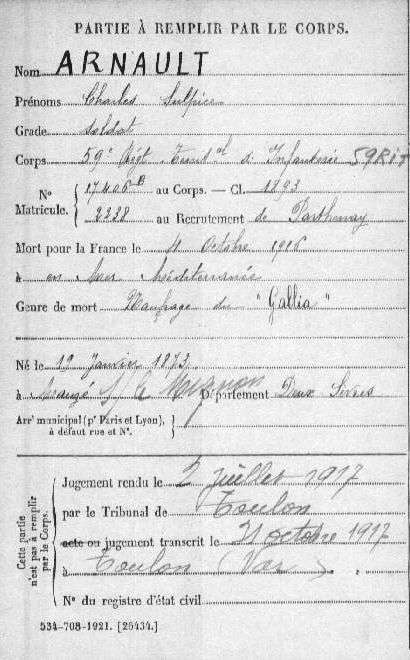 PARTIE À REMPLIR PAR LE CORPS.
Nom ARNAULT
Prénoms Charles Sulpice
Grade soldat
Corps 59e Régt Territal d'Infanterie 59RIT
No Matricule. 17406 B au Corps. — Cl. 1893
2228 au Recrutement de Parthenay
Mort pour la France le 4 Octobre 1916
à en Mer Méditerranée
Genre de mort Naufrage du "Gallia"
Né le Janvier 1873
à Mauzé S/ Mignon Département Deux Sèvres
Arrt municipal (pr Paris et Lyon),
à défaut rue et No.
Cette partie n'est pas à remplir par le Corps.
Jugement rendu le 2 juillet 1917
par le Tribunal de Toulon
acte ou jugement transcrit le octobre 1917
à Toulon (Var)
No du registre d'état civil
534-708-1921. [26434.]